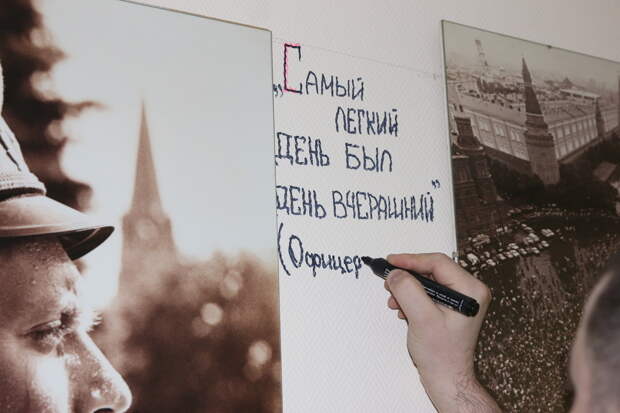 „Самый
легкий
день был
день вчерашний"
(Офицер